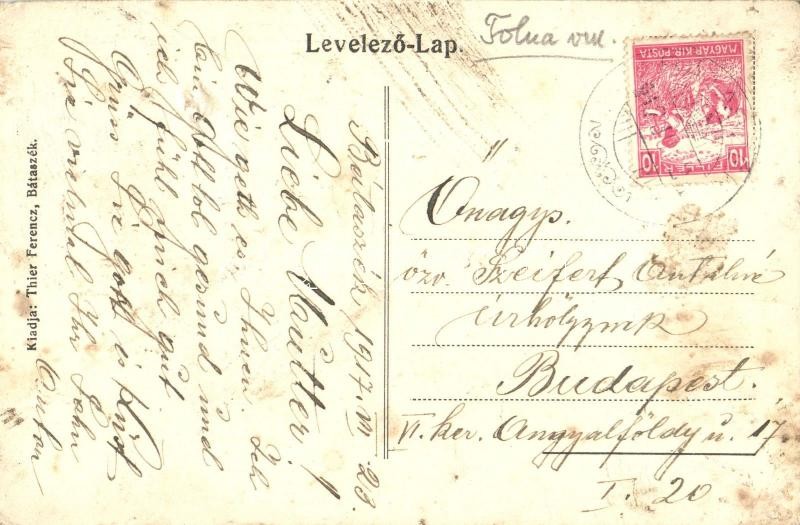 Levelező-Lap.
Tolna vm.
MAGYAR KIR. POSTA
10 FILLÉR 10
Kiadja: Thier Ferencz, Bátaszék.
Bátaszék 1917. VI 23.
Liebe Mutter!
Wie geht es Ihnen. Ich
bin Gott lob gesund und
ich fühl mich gut.
Grüs Sie Gott es küst
Sie vielmal Ihr Sohn
Antan
Őnagys.
özv Szeifert Antalné
úrhölgynek
Budapest.
VI. ker. Angyalföldy u. 17.
I. 20